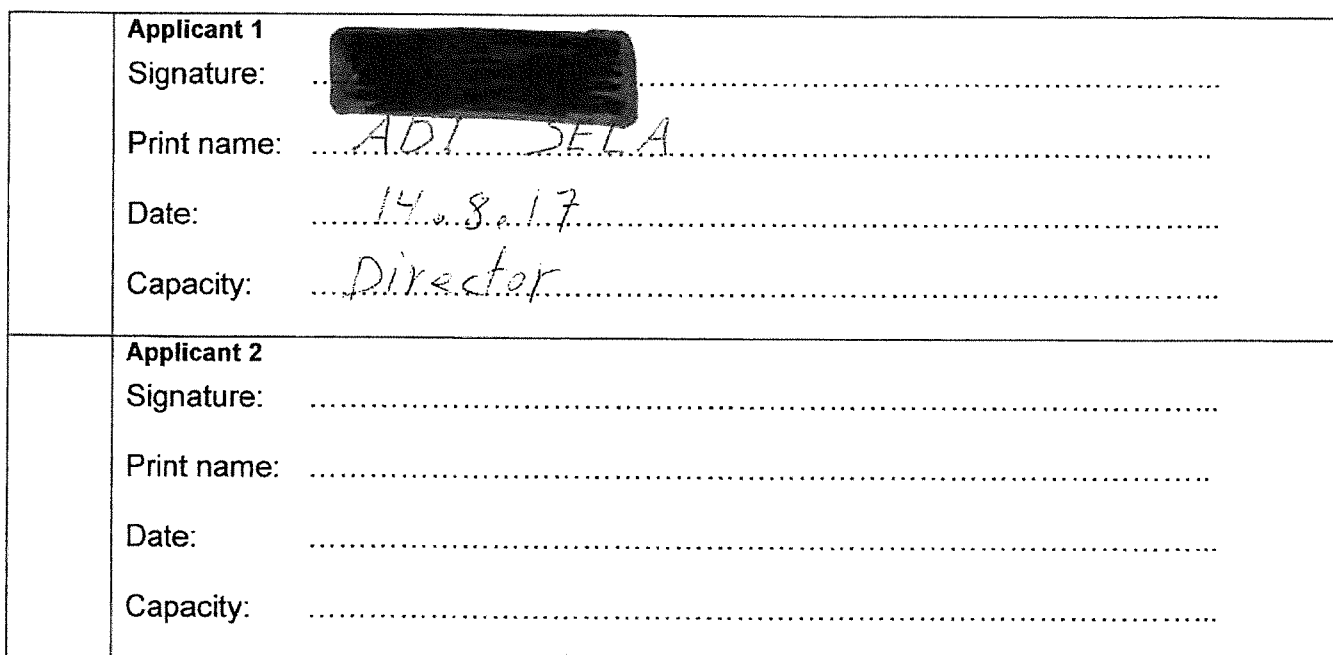 Applicant 1
Signature:
Print name: ADI SELA
Date: 14.8.17
Capacity: Director
Applicant 2
Signature:
Print name:
Date:
Capacity: